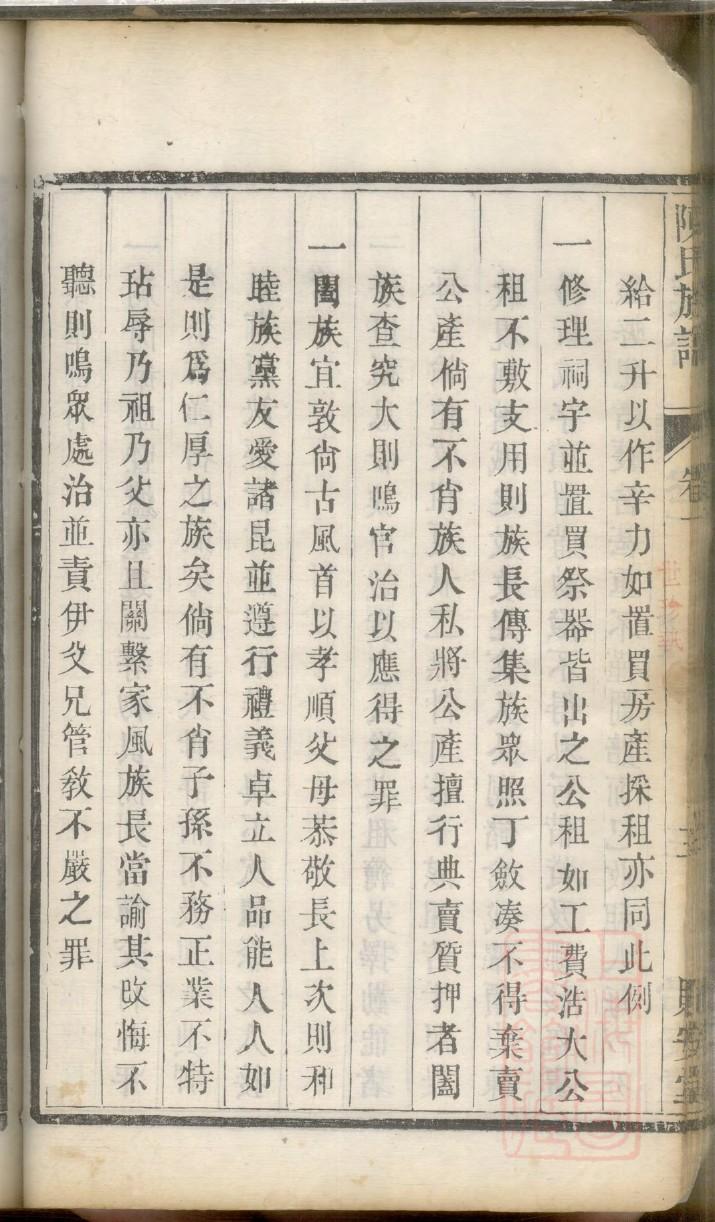 陳氏族譜 卷一
給二升以作辛力如置買房產採租亦同此例
一修理祠宇並置買祭器皆出之公租如工費浩大公
租不敷支用則族長傳集族眾照丁斂凑不得棄賣
公產倘有不肖族人私將公產擅行典賣質押者闔
族查究大則鳴官治以應得之罪
一闔族宜敦尚古風首以孝順父母恭敬長上次則和
睦族黨友愛諸昆並遵行禮義卓立人品能人人如
是則爲仁厚之族矣倘有不肖子孫不務正業不特
玷辱乃祖乃父亦且關繫家風族長當諭其改悔不
聽則鳴眾處治並責伊父兄管敎不嚴之罪